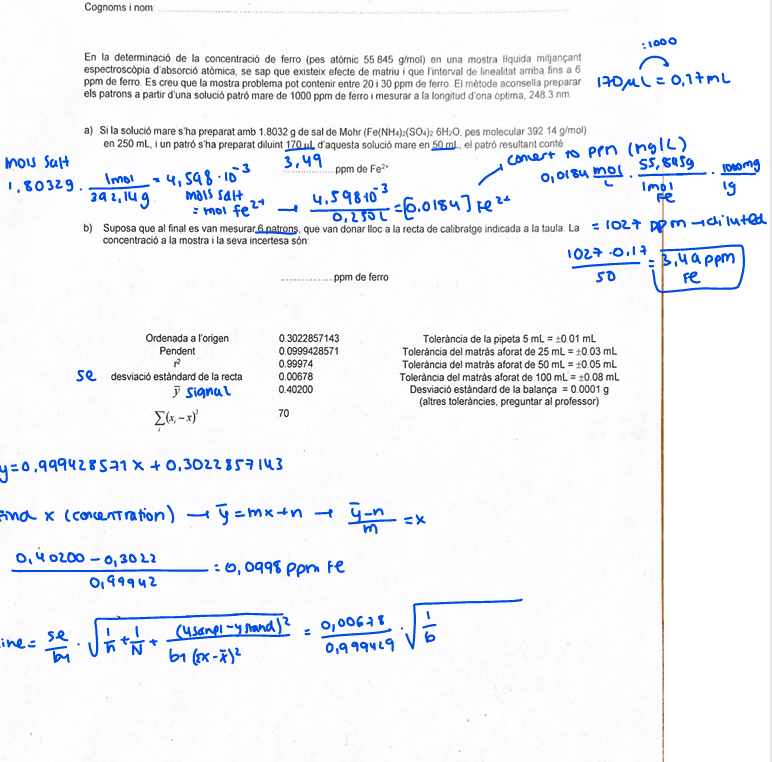 Cognoms i nom:
:1000
170 µL = 0,17 mL
En la determinació de la concentració de ferro (pes atòmic 55.845 g/mol) en una mostra líquida mitjançant
espectroscòpia d'absorció atòmica, se sap que existeix efecte de matriu i que l'interval de linealitat arriba fins a 6
ppm de ferro. Es creu que la mostra problema pot contenir entre 20 i 30 ppm de ferro. El mètode aconsella preparar
els patrons a partir d'una solució patró mare de 1000 ppm de ferro i mesurar a la longitud d'ona òptima, 248.3 nm.
a) Si la solució mare s'ha preparat amb 1.8032 g de sal de Mohr (Fe(NH4)2(SO4)2·6H2O, pes molecular 392.14 g/mol)
en 250 mL, i un patró s'ha preparat diluint 170 µL d'aquesta solució mare en 50 mL, el patró resultant conté
3,49 ppm de Fe²⁺
convert to ppm (mg/L)
mols salt
1,8032g · 1mol / 392,14g = 4,598·10⁻³ mols salt = mol Fe²⁺ → 4,598·10⁻³ / 0,250L = [0.0184] Fe²⁺
0,0184 mol/L · 55,845g / 1mol Fe · 1000mg / 1g
= 1027 ppm → diluted
1027 · 0,17 / 50 = 3,49 ppm Fe
b) Suposa que al final es van mesurar 6 patrons, que van donar lloc a la recta de calibratge indicada a la taula. La
concentració a la mostra i la seva incertesa són:
...................ppm de ferro
Ordenada a l'origen 0.3022857143 Tolerància de la pipeta 5 mL = ±0.01 mL
Pendent 0.0999428571 Tolerància del matràs aforat de 25 mL = ±0.03 mL
r² 0.99974 Tolerància del matràs aforat de 50 mL = ±0.05 mL
se desviació estàndard de la recta 0.00678 Tolerància del matràs aforat de 100 mL = ±0.08 mL
ȳ signal 0.40200 Desviació estàndard de la balança = 0.0001 g
(altres toleràncies, preguntar al professor)
∑(xᵢ − x)² 70
y=0,999428571x + 0,3022857143
find x (concentration) → ȳ=mx+n → ȳ-n / m = x
0,40200 - 0,3022 / 0,99942 = 0,0998 ppm Fe
ine = se/b1 · √(1/n + 1/N + (ysampl - ystand)² / b1 (xx - x̄)²) = 0,00678 / 0,999429 · √(1/6